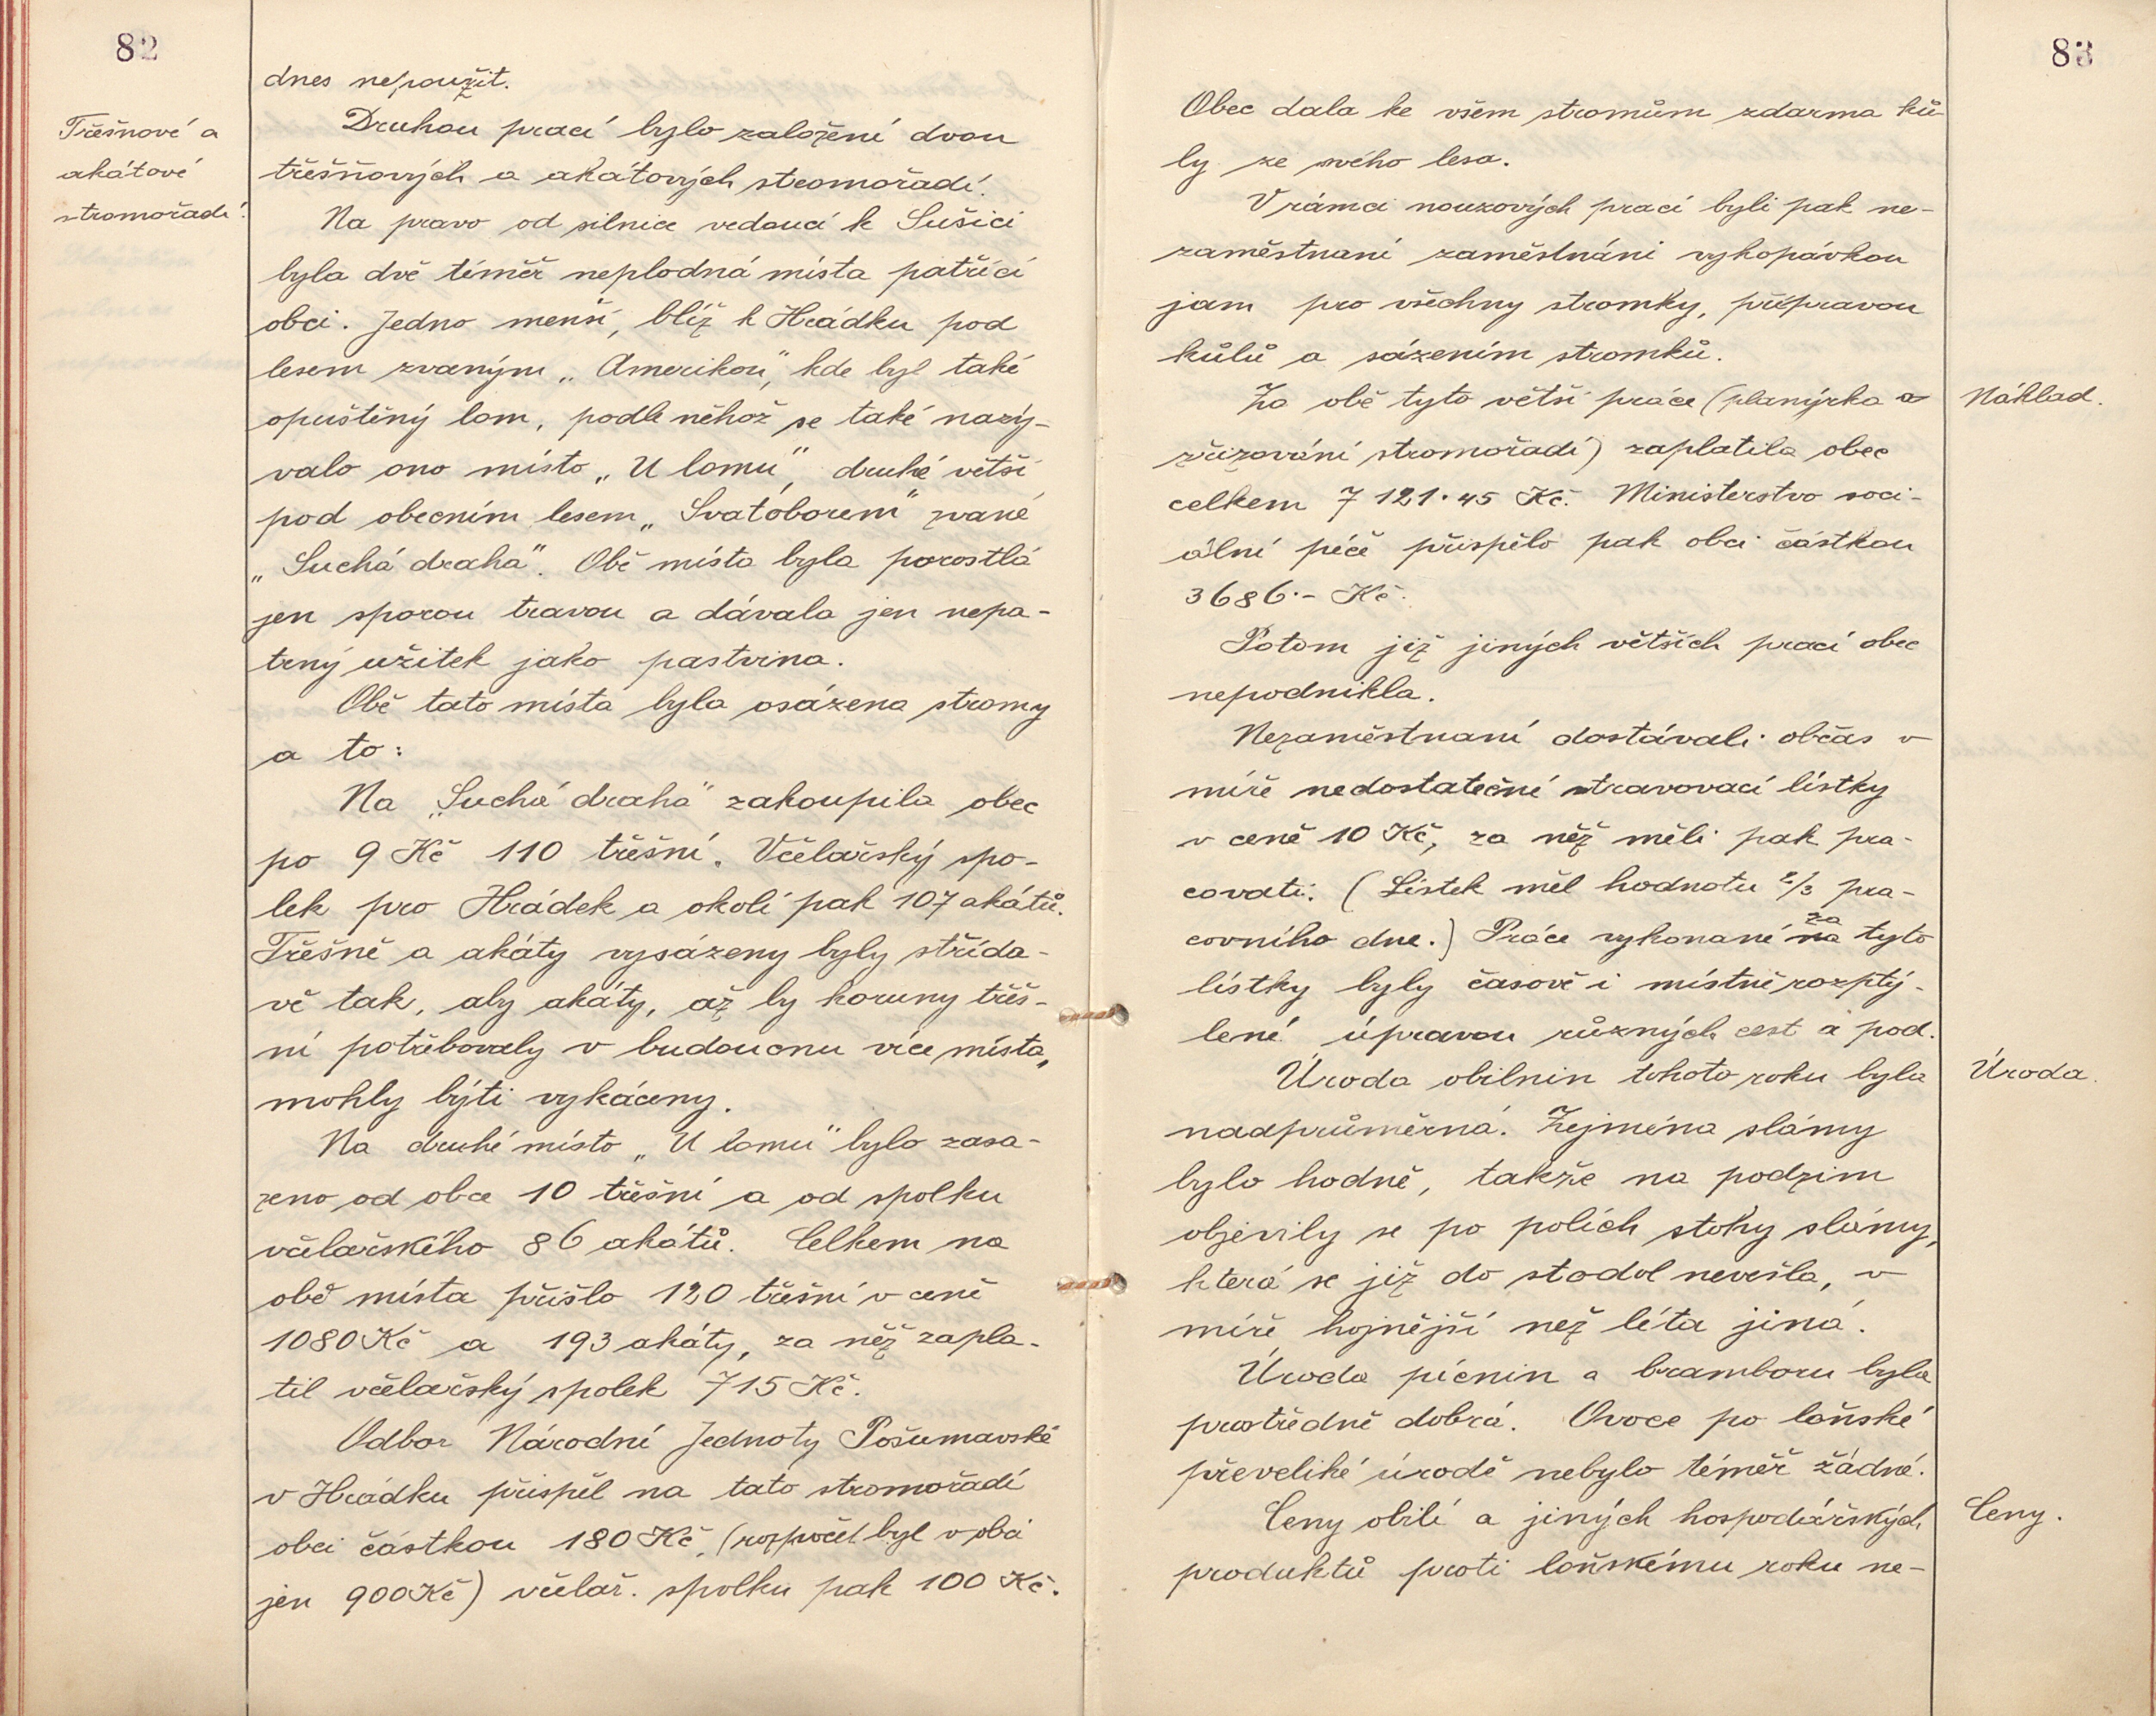 82
dnes nepoužit.
Třešňové a
akátové
stromořadí.
Druhou prací bylo založení dvou
třešňových a akátových stromořadí.
Na pravo od silnice vedoucí k Sušici
byla dvě téměř neplodná místa patřící
obci. Jedno menší, blíž k Hrádku pod
lesem zvaným „Amerikou", kde byl také
opuštěný lom, podle něhož se také nazý-
valo ono místo „U lomu", druhé větší
pod obecním lesem „Svatoborem" zvané
„Suchá draha". Obě místa byla porostlá
jen sporou travou a dávala jen nepa-
trný užitek jako pastvina.
Obě tato místa byla osázena stromy
a to:
Na „Suchá draha" zakoupila obec
po 9 Kč 110 třešní. Včelařský spo-
lek pro Hrádek a okolí pak 107 akátů.
Třešně a akáty vysázeny byly střída-
vě tak, aby akáty, až by koruny třeš-
ní potřebovaly v budoucnu více místa,
mohly býti vykáceny.
Na druhé místo „U lomu" bylo zasa-
zeno od obce 10 třešní a od spolku
včelařského 86 akátů. Celkem na
obě místa přišlo 120 třešní v ceně
1080 Kč a 193 akáty, za něž zapla-
til včelařský spolek 715 Kč.
Odbor Národní Jednoty Pošumavské
v Hrádku přispěl na tato stromořadí
obci částkou 180 Kč, (rozpočet byl v obci
jen 900 Kč) včelař. spolku pak 100 Kč.
83
Obec dala ke všem stromům zdarma ků-
ly ze svého lesa.
V rámci nouzových prací byli pak ne-
zaměstnaní zaměstnáni vykopávkou
jam pro všechny stromky, přípravou
kůlů a sázením stromků.
Za obě tyto větší práce (planýrka a
Náklad.
zřizování stromořadí) zaplatila obec
celkem 7 121·45 Kč. Ministerstvo soci-
ální péče přispělo pak obci částkou
3686·- Kč.
Potom již jiných větších prací obec
nepodnikla.
Nezaměstnaní dostávali občas v
míře nedostatečné stravovací lístky
v ceně 10 Kč, za něž měli pak pra-
covati. (Lístek měl hodnotu 2/3 pra-
covního dne.) Práce vykonané na za tyto
lístky byly časově i místně rozptý-
lené úpravou různých cest a pod.
Úroda obilnin tohoto roku byla
Úroda.
nadprůměrná. Zejména slámy
bylo hodně, takže na podzim
objevily se po polích stohy slámy,
která se již do stodol nevešla, v
míře hojnější než léta jiná.
Úroda pícnin a bramboru byla
prostředně dobrá. Ovoce po loňské
převeliké úrodě nebylo téměř žádné.
Ceny obilí a jiných hospodářských
Ceny.
produktů proti loňskému roku ne-